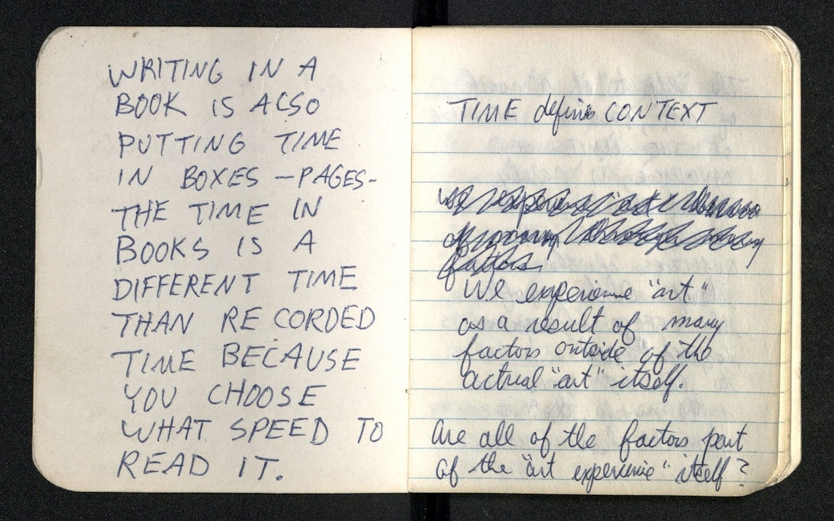 WRITING IN A
BOOK IS ALSO
PUTTING TIME
IN BOXES -PAGES-
THE TIME IN
BOOKS IS A
DIFFERENT TIME
THAN RECORDED
TIME BECAUSE
YOU CHOOSE
WHAT SPEED TO
READ IT.
TIME defines CONTEXT
We experience "art"
as a result of many
factors outside of the
actual "art" itself.
are all of the factors part
of the "art experience" itself?